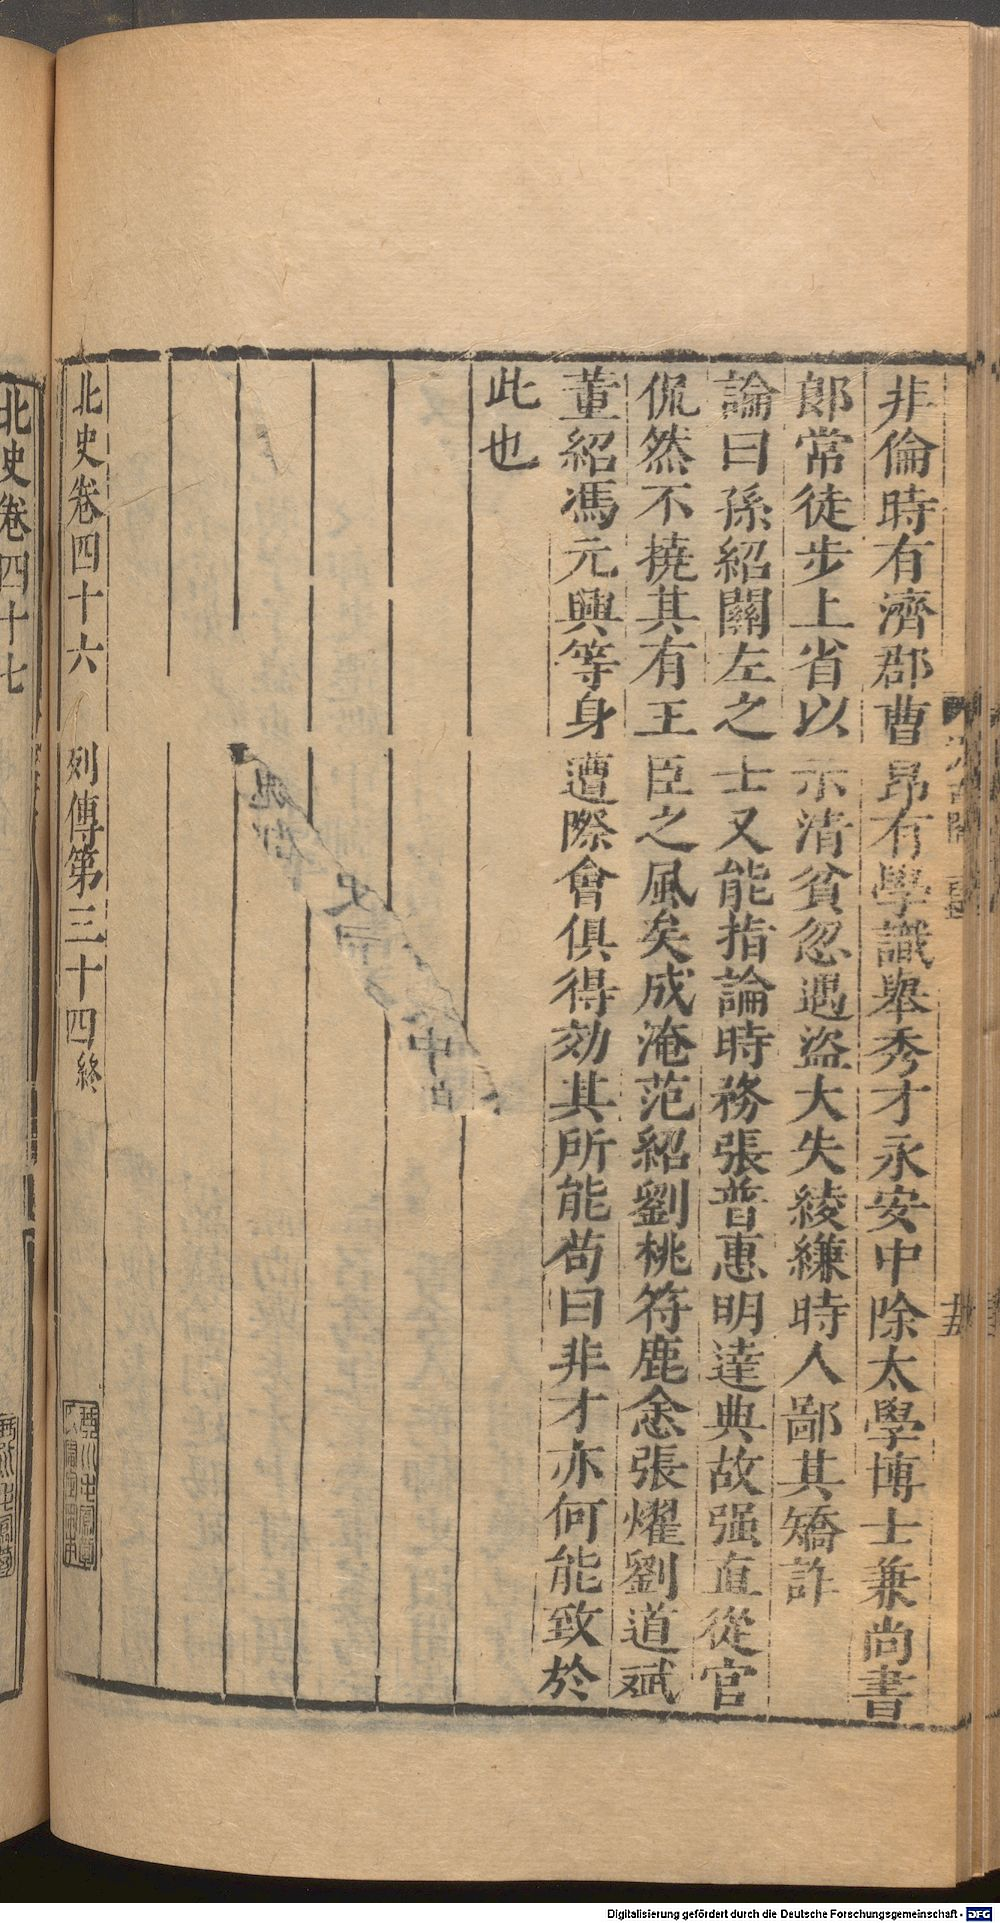 非倫時有濟郡曹昂有學識舉秀才永安中除太學博士兼尚書
郎常徒步上省以示清貧忽遇盜大失綾縑時人鄙其矯詐
論曰孫紹關左之士又能指論時務張普惠明達典故强直從官
侃然不撓其有王臣之風矣成淹范紹劉桃符鹿悆張燿劉道斌
董紹馮元興等身遭際會俱得効其所能苟曰非才亦何能致於
此也
北史卷四十六 列傳第三十四終
北史卷四十七
Digitalisierung gefördert durch die Deutsche Forschungsgemeinschaft - DFG